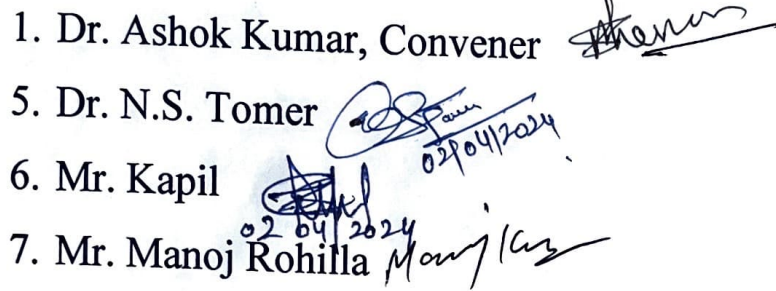 1. Dr. Ashok Kumar, Convener
5. Dr. N.S. Tomer
02/04/2024
6. Mr. Kapil
02/04/2024
7. Mr. Manoj Rohilla